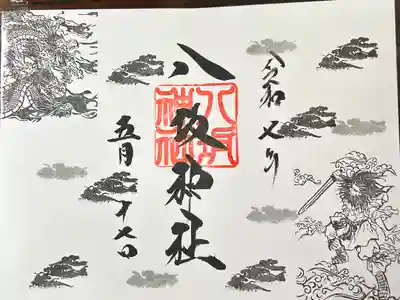 令和 年
八坂神社
八坂神社
五月十七日